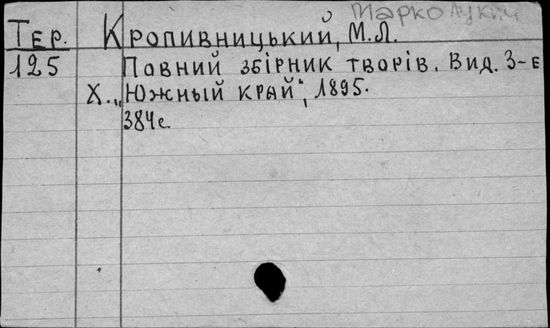 Марко Лукич
Тер. Кропивницький, М.Л.
125 Повний збірник творів. Вид. 3-е
Х. „Южный край", 1895.
384с.